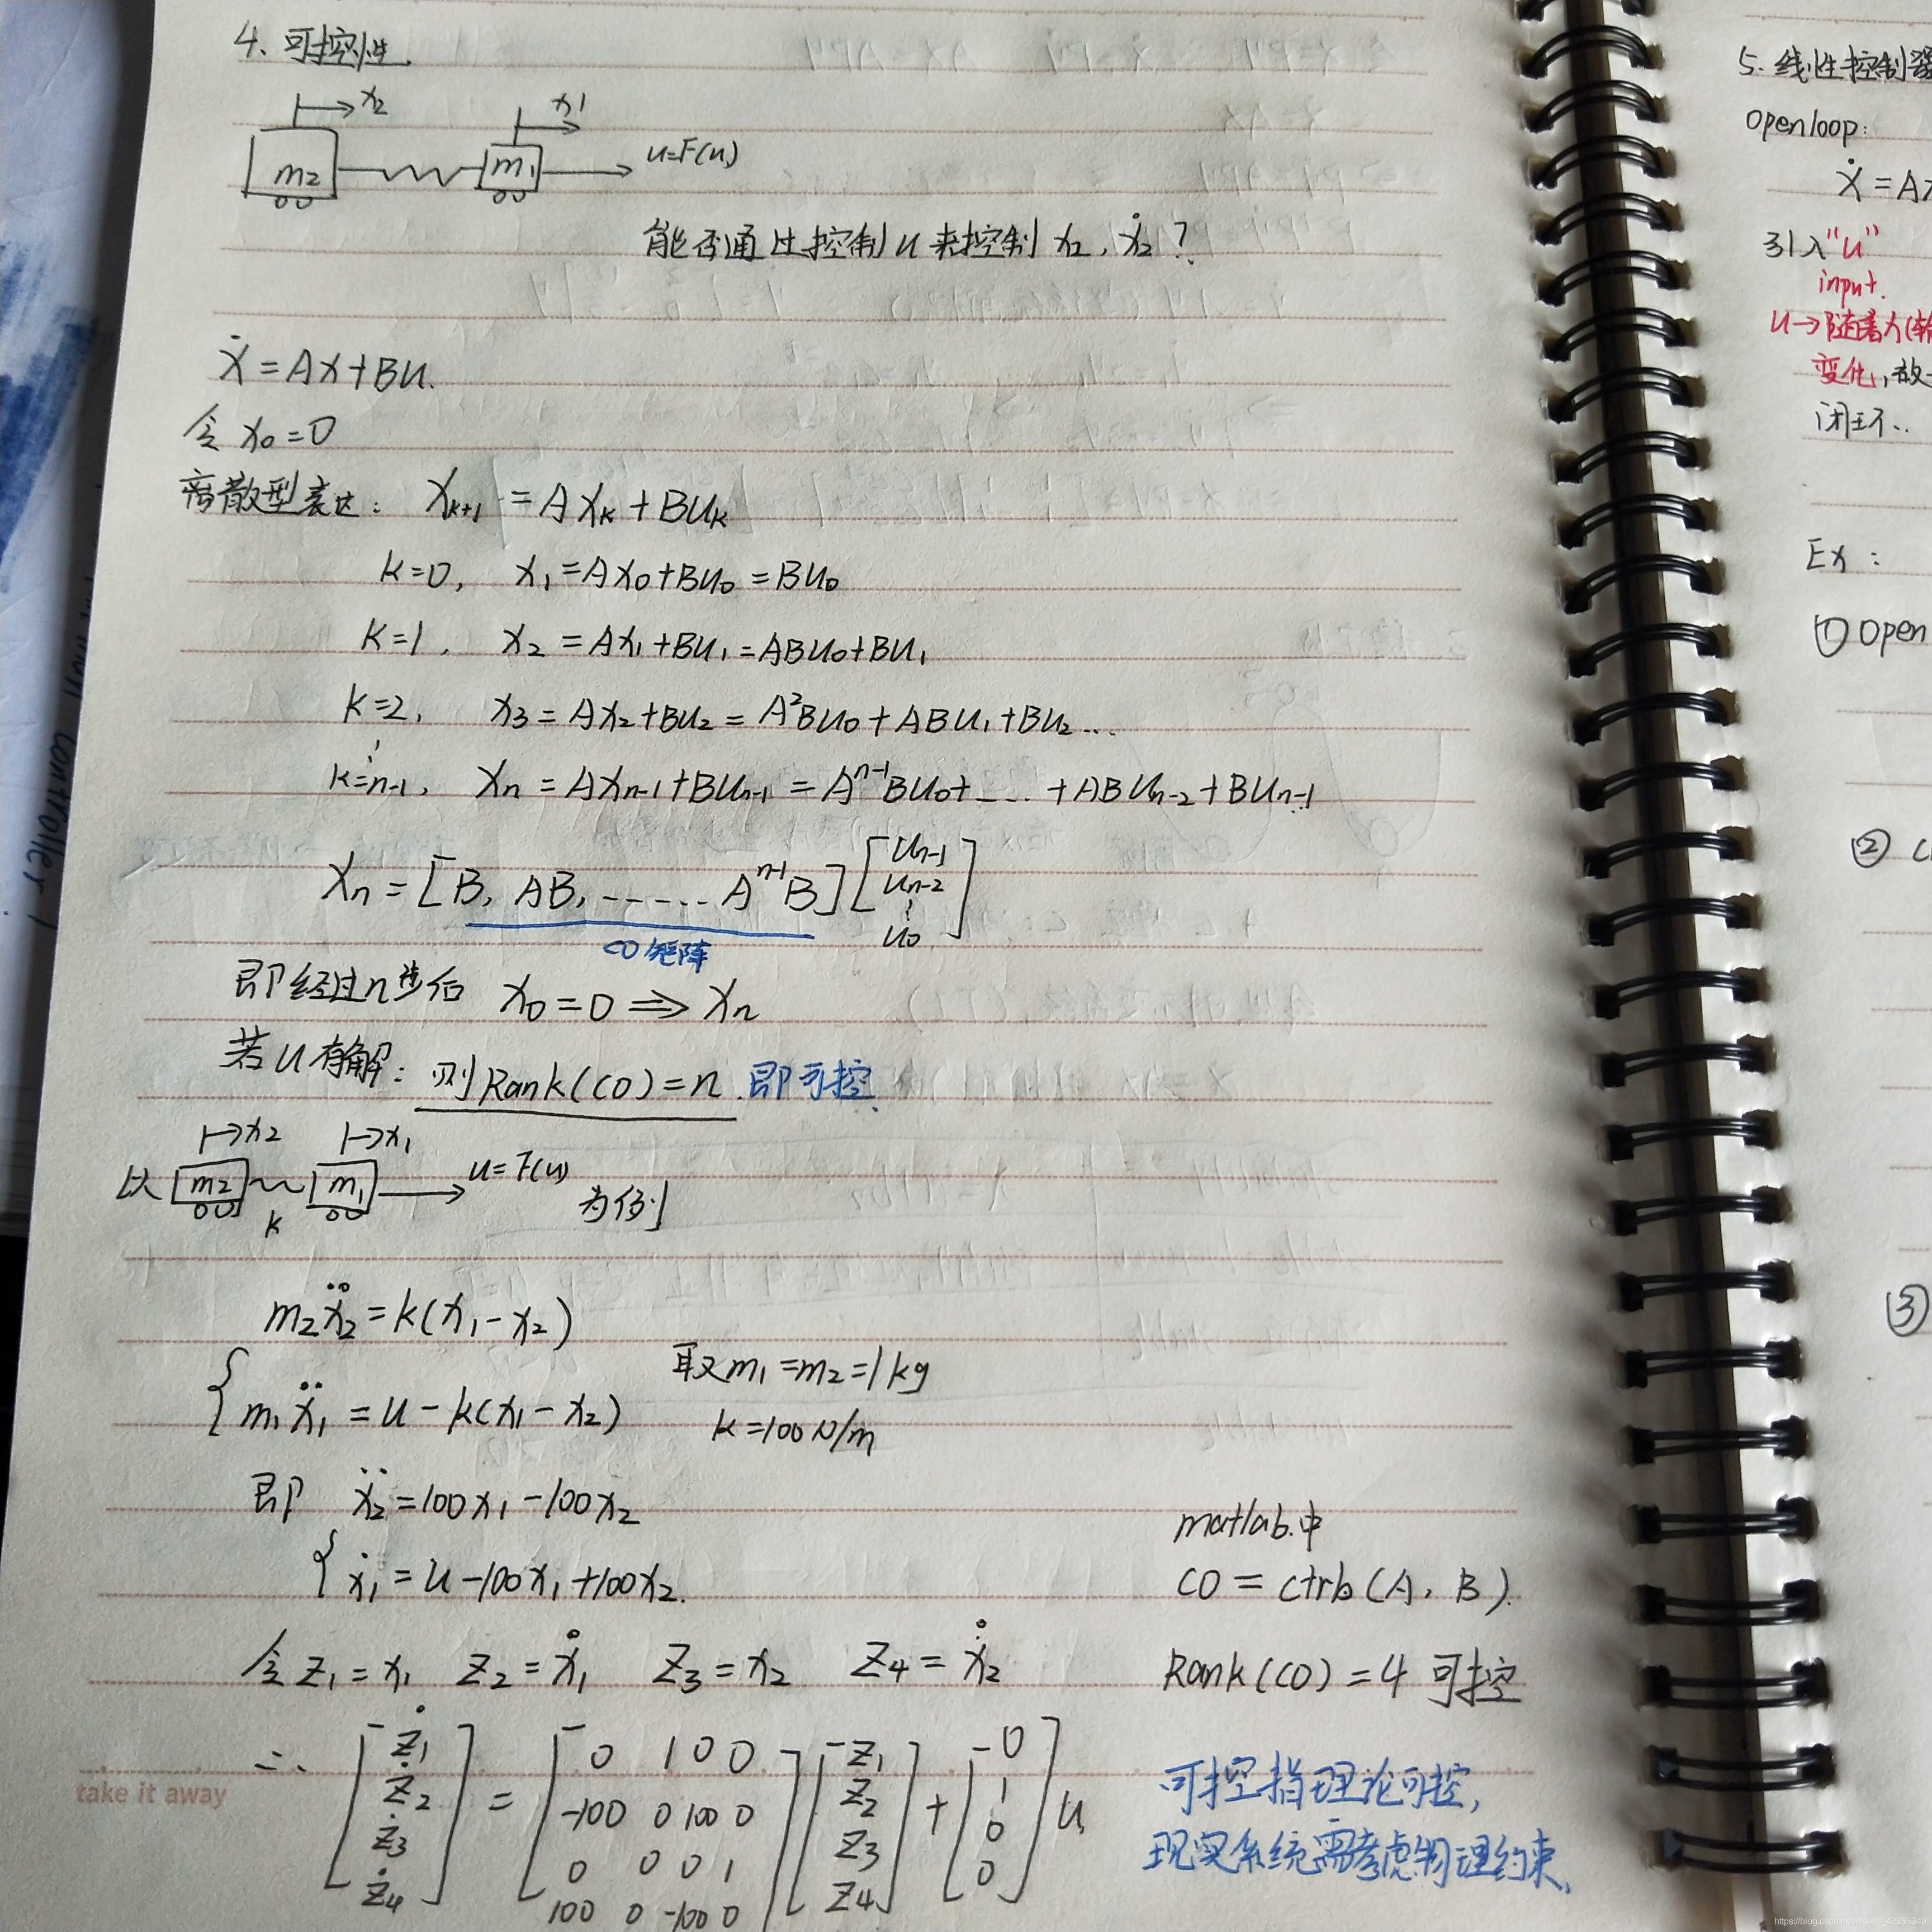 4、可控性.
x2 x1
m2 m1 u=F(u)
能否通过控制u来控制 x2, ẋ2?
Ẋ=AX+BU.
令 x0=0
离散型表达: Xk+1 = AXk+BUk
k=0, x1=Ax0+Bu0=Bu0
k=1, x2=Ax1+Bu1=ABu0+Bu1
k=2, x3=Ax2+Bu2=A²Bu0+ABu1+Bu2...
⋮
k=n-1, xn=Axn-1+Bun-1=Aⁿ⁻¹Bu0+...+ABUn-2+Bun-1
Xn=[B, AB, ------ Aⁿ⁻¹B][Un-1 Un-2 ⋮ U0]
CO矩阵
即经过n步后 x0=0 ⇒ Xn
若U有解: 则Rank(CO)=n. 即可控.
x2 x1
以 m2 m1 u=F(u) 为例
k
m2ẍ2=k(x1-x2)
取m1=m2=1kg
{ m1ẍ1=u-k(x1-x2)
k=100N/m
即 ẍ2=100x1-100x2
{ ẋ1=u-100x1+100x2.
令z1=x1 z2=ẋ1 z3=x2 z4=ẋ2
∴ [ż1 ż2 ż3 ż4] = [0 1 0 0
-100 0 100 0
0 0 0 1
100 0 -100 0] [z1 z2 z3 z4] + [0 1 0 0] u
matlab.中
CO = ctrb(A, B).
Rank(CO)=4 可控
可控指理论可控,
现实系统需考虑物理约束.
take it away
5. 线性控制器
openloop:
Ẋ=Ax
引入"u"
input.
u→随着x(
变化, 故
闭环..
Ex:
① open
②
③
controller